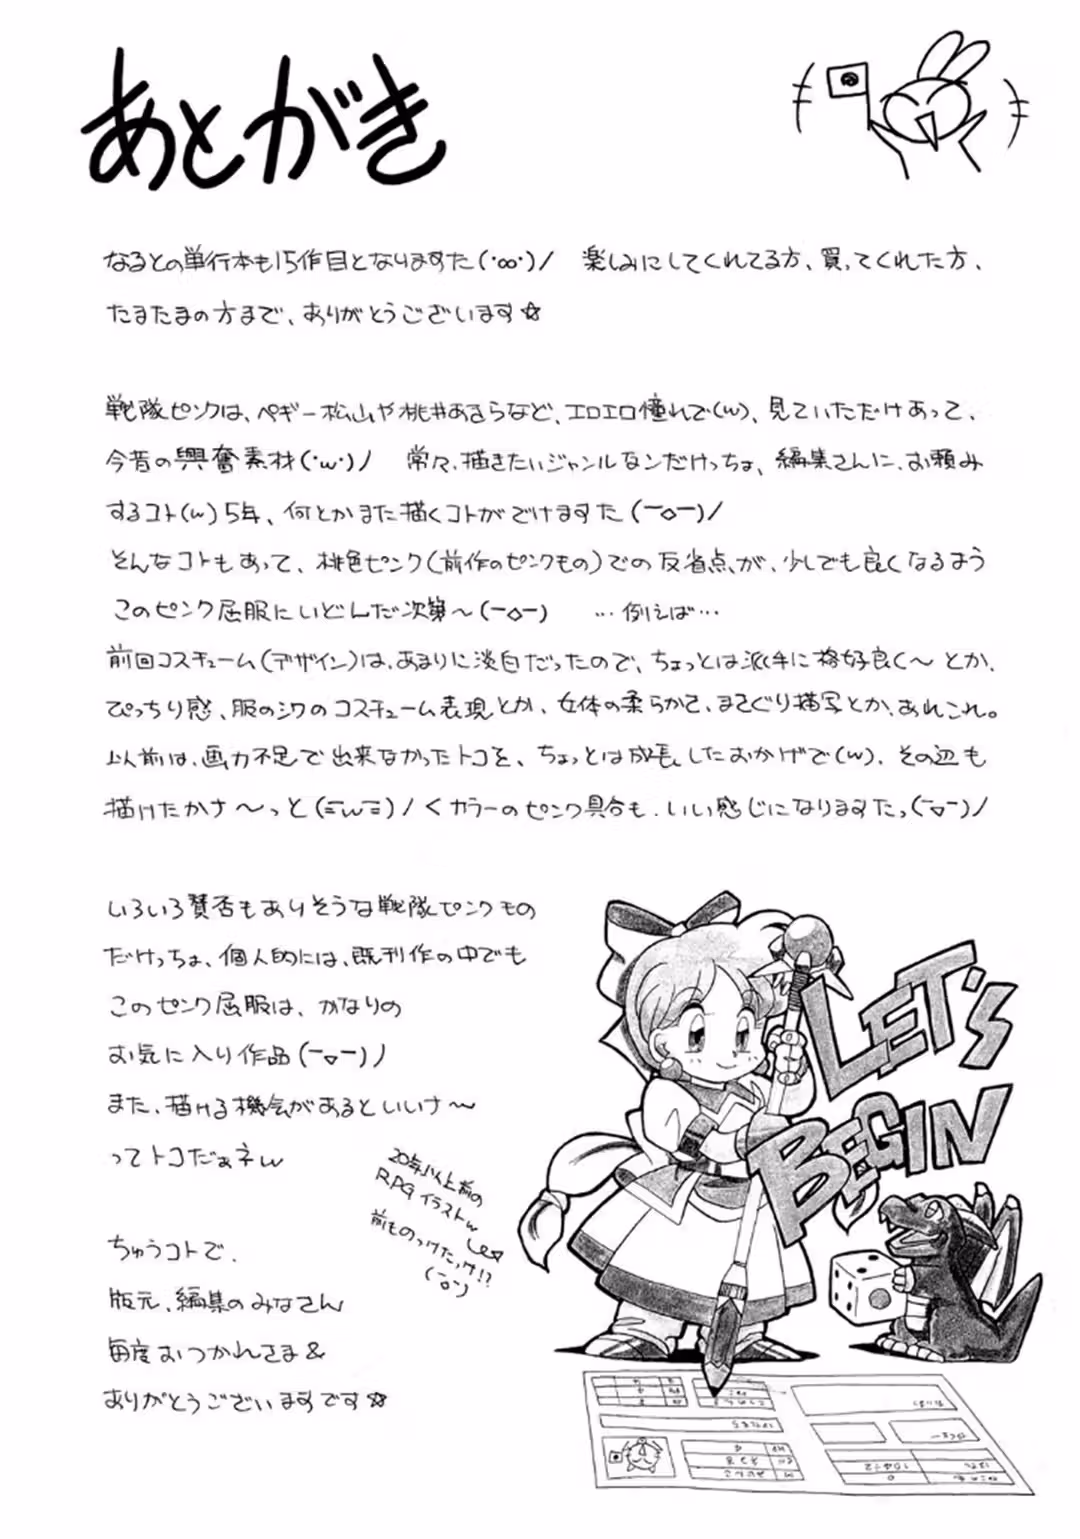 あとがき
なるとの単行本も15作目となりますた(･∞･)ノ 楽しみにしてくれてる方、買ってくれた方、
たまたまの方まで、ありがとうございます☆
戦隊ピンクは、ペギー松山や桃井あきらなど、エロエロ憧れで(w)、見ていただけあって、
今昔の興奮素材(･w･)ノ 常々、描きたいジャンルなンだけっちょ、編集さんに、お頼み
するコト(w)5年、何とかまた描くコトがでけますた(￣◇￣)ノ
そんなコトもあって、桃色ピンク(前作のピンクもの)での反省点が、少しでも良くなるよう
このピンク屈服にいどんだ次第～(￣◇￣) …例えば…
前回コスチューム(デザイン)は、あまりに淡白だったので、ちょっとは派手に格好良く～とか、
ぴっちり感、服のシワのコスチューム表現とか、女体の柔らかさ、まさぐり描写とか、あれこれ。
以前は、画力不足で出来なかったトコを、ちょっとは成長したおかげで(w)、その辺も
描けたかナ～っと(＝w＝)ノ くカラーのピンク具合も、いい感じになりますたっ(￣▽￣)ノ
いろいろ賛否もありそうな戦隊ピンクもの
だけっちょ、個人的には、既刊作の中でも
このピンク屈服は、かなりの
お気に入り作品(￣▽￣)ノ
また、描ける機会があるといいナ～
ってトコだぁネw
20年以上前の
RPGイラストw
前ものっけたっけ!?
(￣o￣)ﾉ
ちゅうコトで、
版元、編集のみなさん
毎度おつかれさま&
ありがとうございますです☆
LET'S
BEGIN